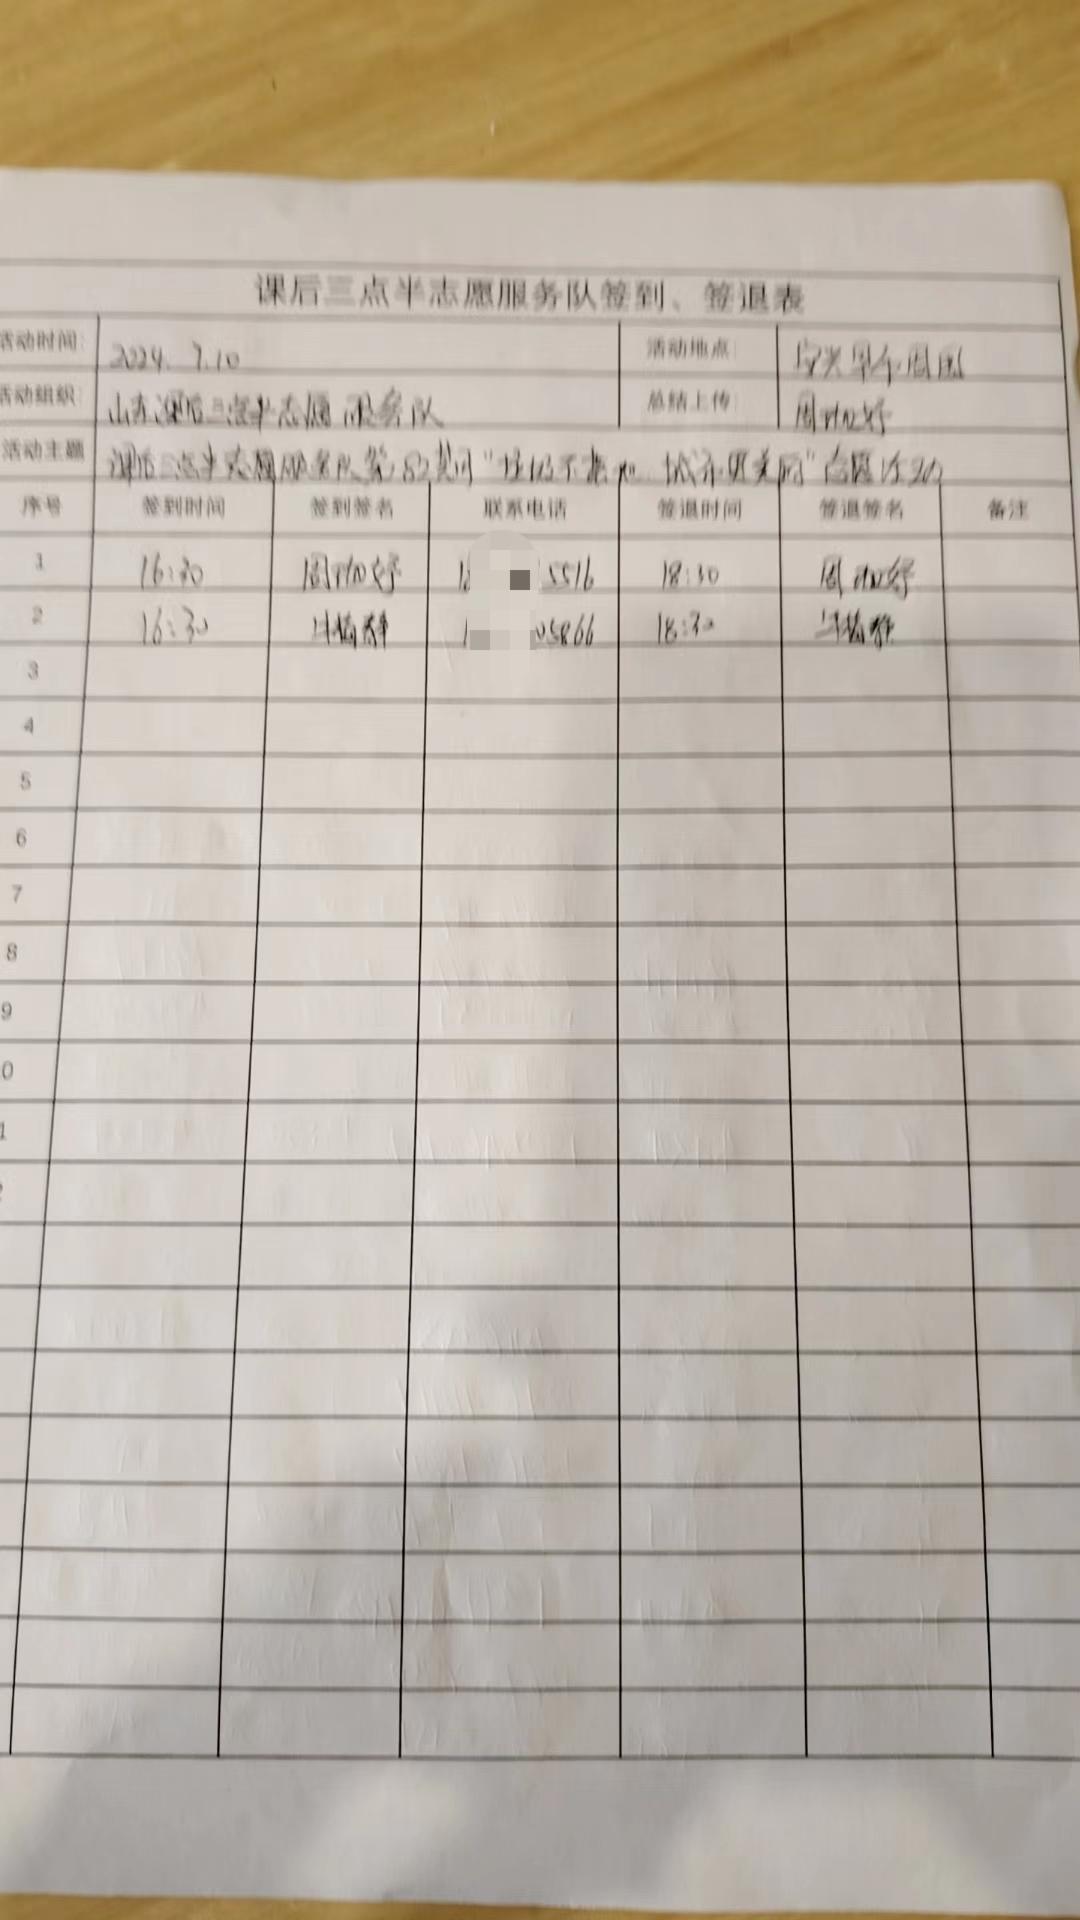 课后三点半志愿服务队签到、签退表
活动时间: 2024. 7.10 活动地点:
活动组织: 山东课后三点半志愿服务队 总结上传: 周
活动主题 课后三点半志愿服务队第 期"垃圾不落地 城市更美丽"志愿活动
序号 签到时间 签到签名 联系电话 签退时间 签退签名 备注
1 16:30 周 5516 18:30 周
2 16:30 05866 18:30
3
4
5
6
7
8
9
0
1